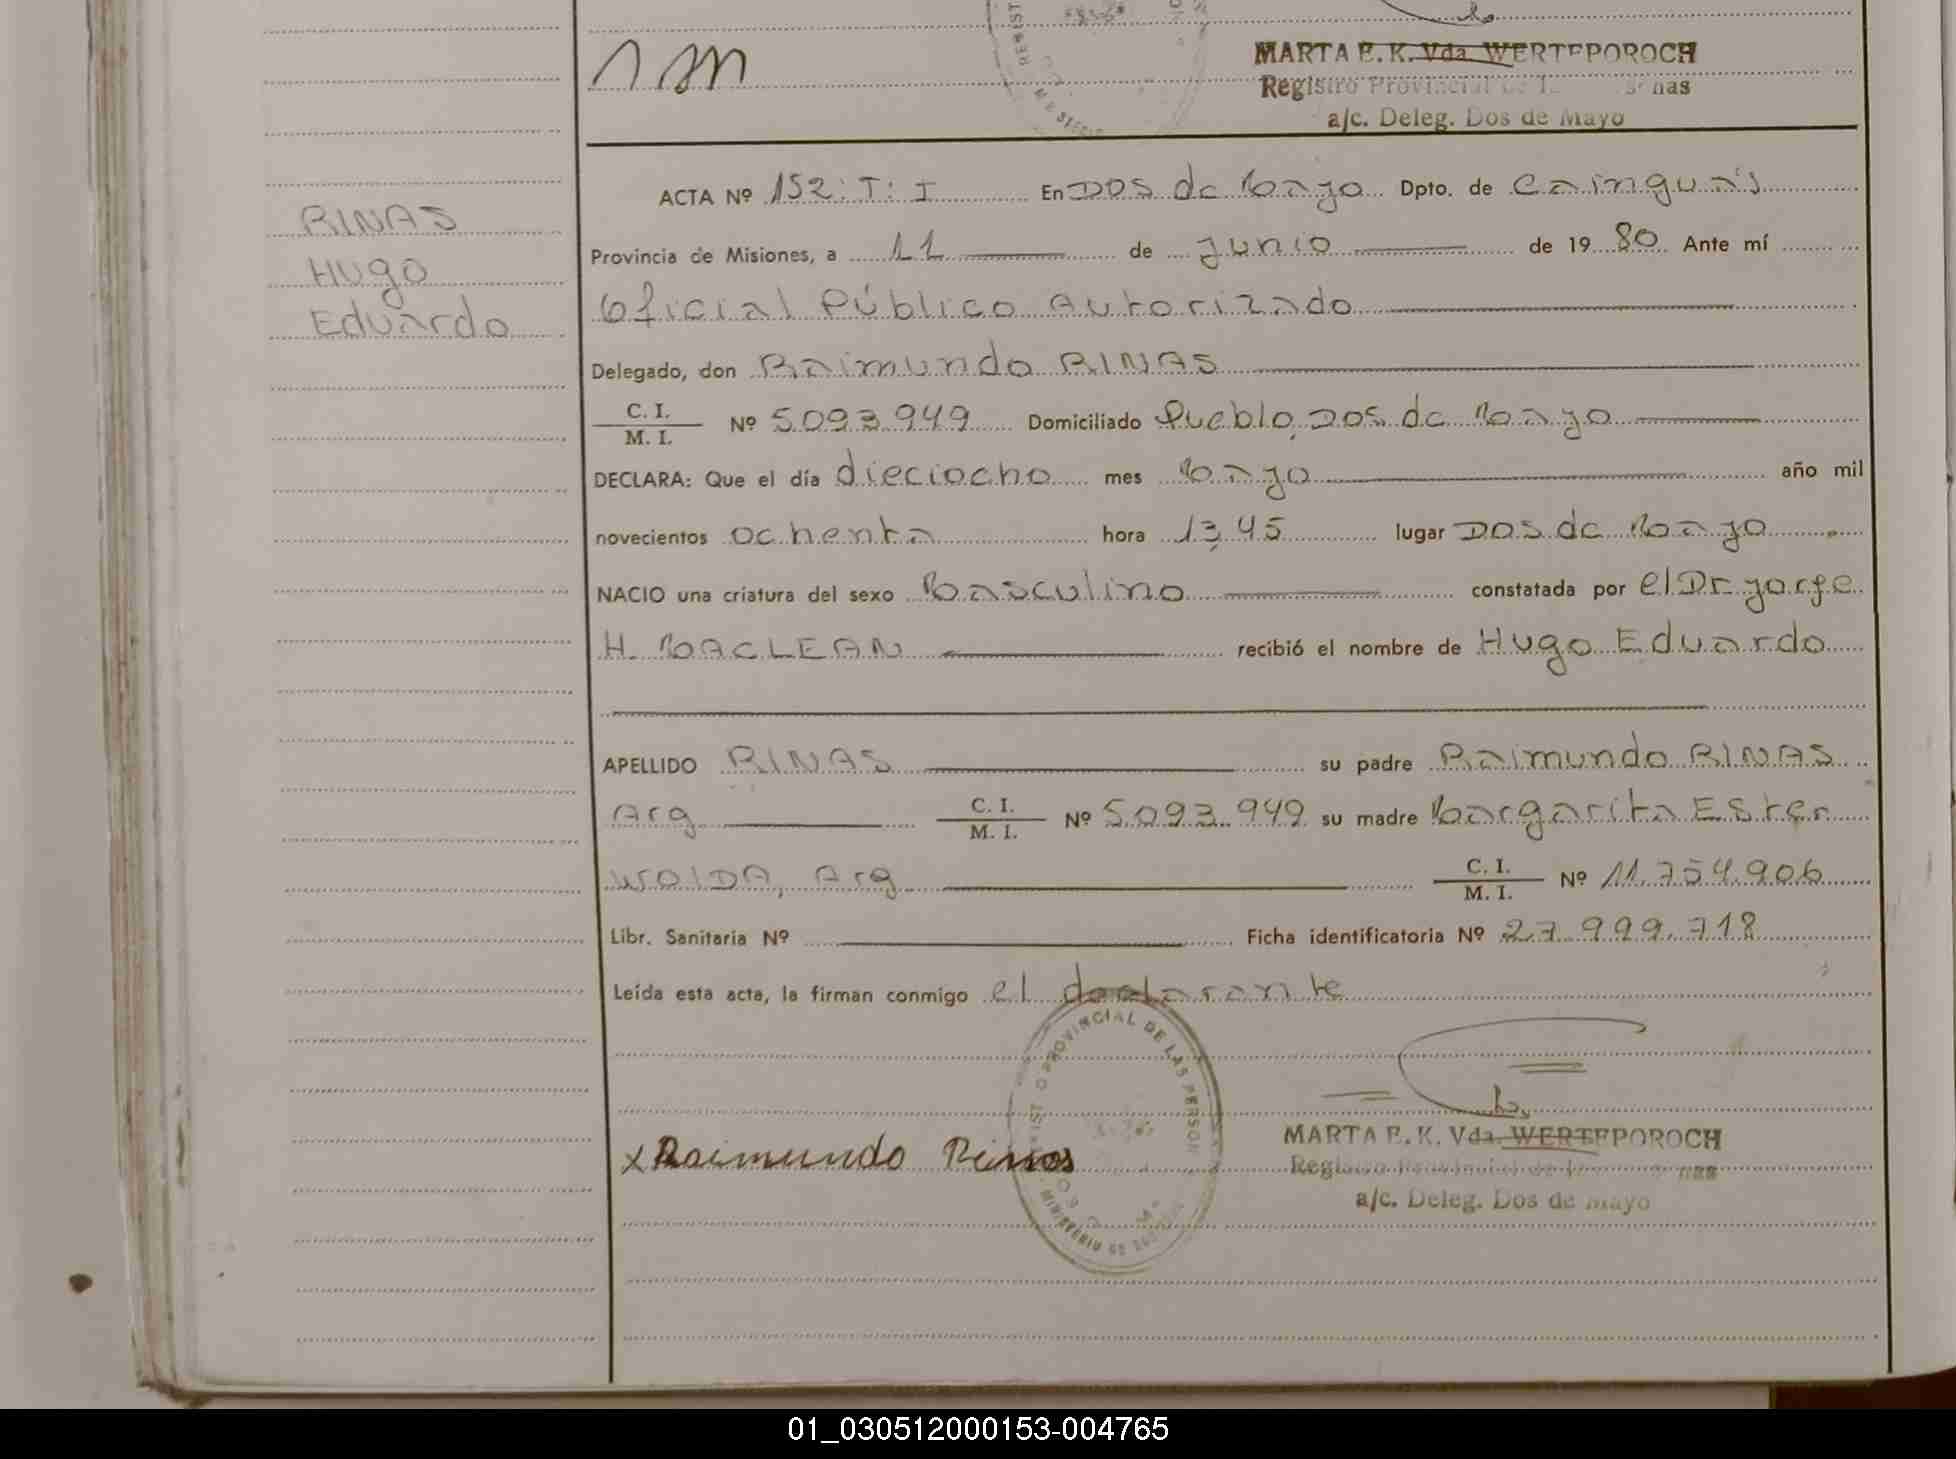 MARTA E. K. Vda. WERTEPOROCH
Registro Provincial de
a/c. Deleg. Dos de Mayo
RINAS
Hugo
Eduardo
ACTA Nº 152: T: I En Dos de Mayo Dpto. de Cainguas
Provincia de Misiones, a 11 de junio de 1980 Ante mí
Oficial Público Autorizado
Delegado, don Raimundo RINAS
C. I.
M. I. Nº 5.093.949 Domiciliado Pueblo, Dos de Mayo
DECLARA: Que el día dieciocho mes Mayo año mil
novecientos ochenta hora 13,45 lugar Dos de Mayo
NACIO una criatura del sexo Masculino constatada por el Dr. Jorge
H. MACLEAN recibió el nombre de Hugo Eduardo
APELLIDO RINAS su padre Raimundo RINAS
Arg C. I.
M. I. Nº 5.093.949 su madre Margarita Ester
WOIDA, Arg C. I.
M. I. Nº 11.754.906
Libr. Sanitaria Nº Ficha identificatoria Nº 27.999.718
Leída esta acta, la firman conmigo el declarante
PROVINCIAL DE LAS PERSON
x Raimundo Rinas
MARTA E. K. Vda. WERTEPOROCH
Registro Provincial de
a/c. Deleg. Dos de Mayo
01_030512000153-004765